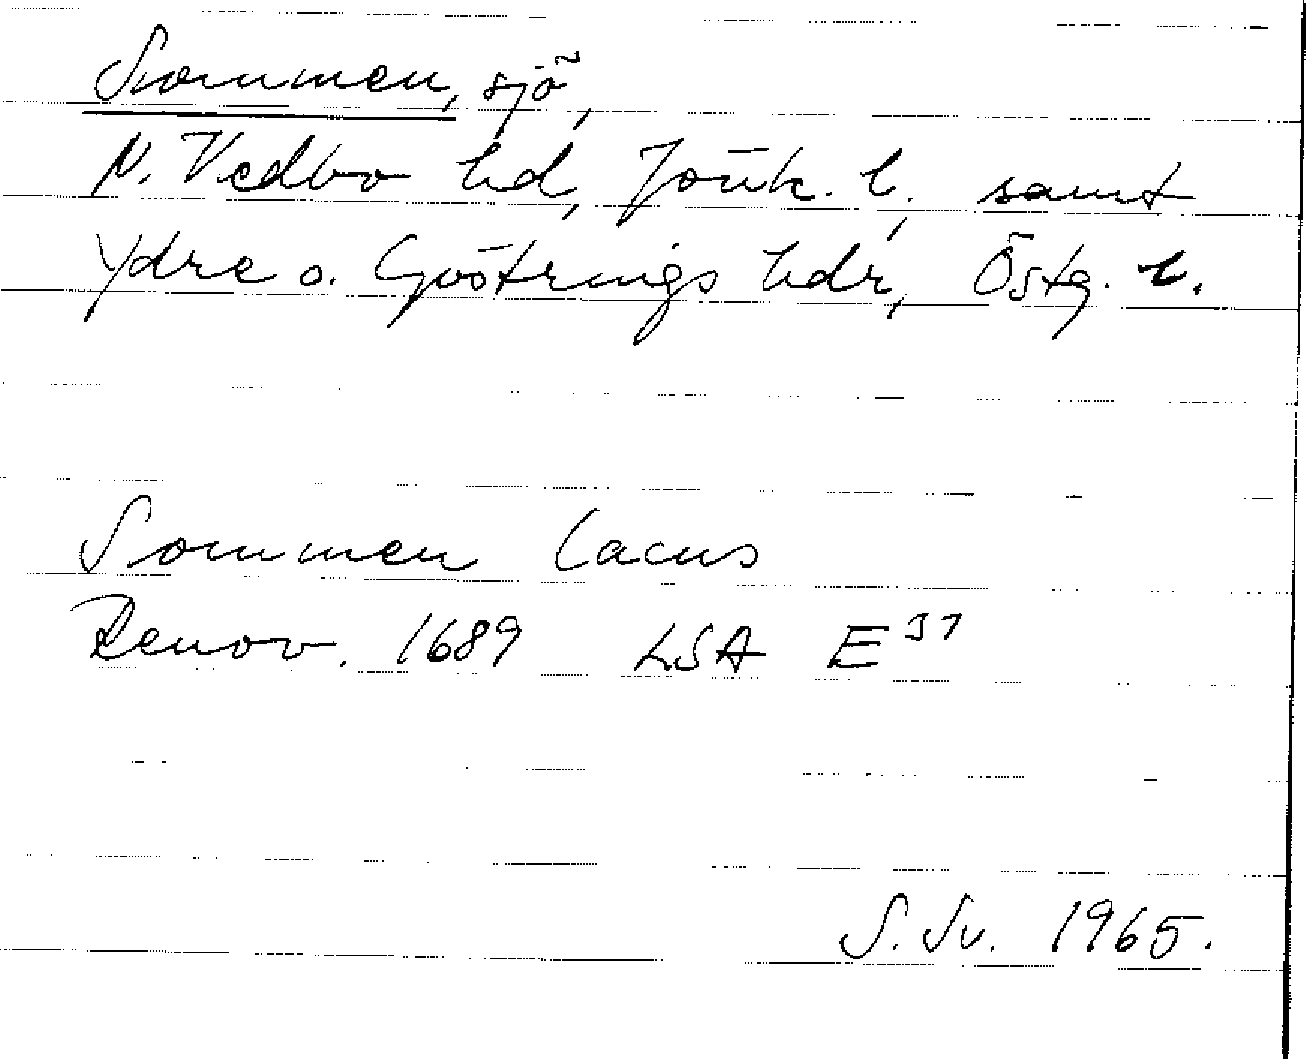 Sommen, sjö,
N. Vedbo hd, Jönk. l., samt
Ydre o. Göstrings hdr, Östg. l.
Sommen lacus
Renov. 1689 LSA E 37
S. Sv. 1965.